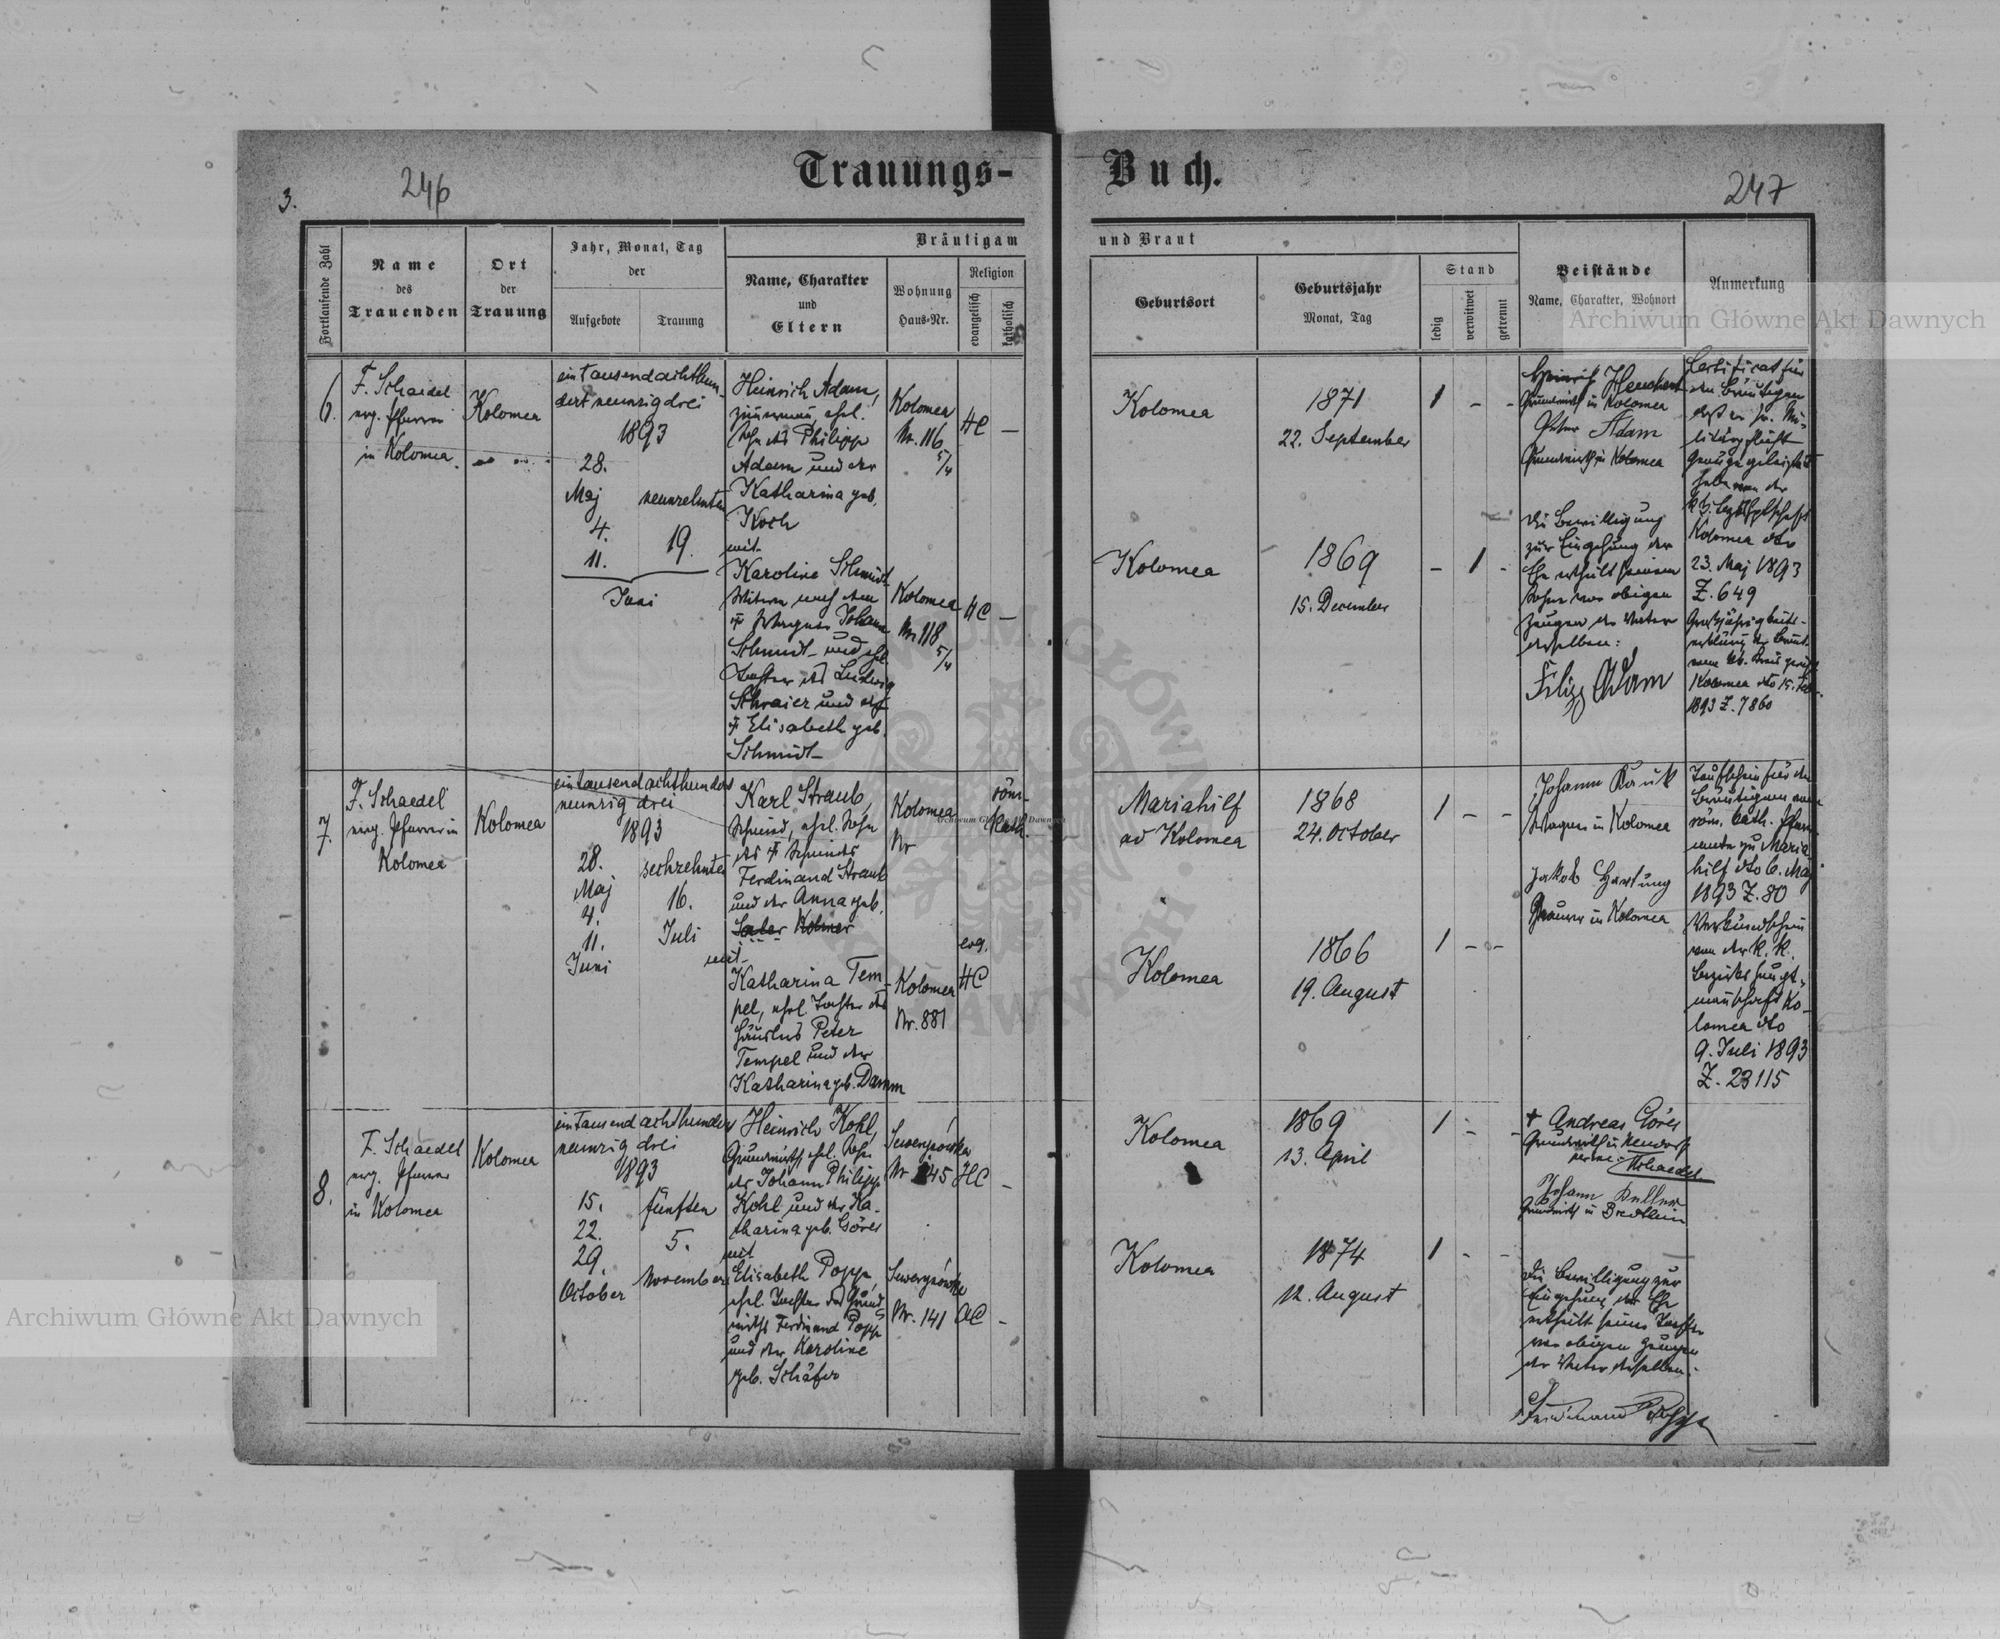 3.
246
Trauungs-
Buch.
247
Fortlaufende Zahl
Name
des
Trauenden
Ort
der
Trauung
Jahr, Monat, Tag
der
Aufgebote
Trauung
Bräutigam
und Braut
Name, Charakter
und
Eltern
Wohnung
Haus-Nr.
Religion
evangelisch
katholisch
Geburtsort
Geburtsjahr
Monat, Tag
Stand
ledig
verwitwet
getrennt
Beistände
Name, Charakter, Wohnort
Anmerkung
6.
F. Schaedel
evg. Pfarrer
in Kolomea.
Kolomea
ein tausend achthun-
dert neunzig drei
1893
28.
Maj
4.
11.
Juni
neunzehnten
19.
Heinrich Adam,
ehel.
Sohn des Philipp
Adam und der
Katharina geb.
Koch
mit
Karoline Schmidt
Witwe nach dem
† Wagner Johann
Schmidt und ehel.
Tochter des Ludwig
Schraier und der
† Elisabeth geb.
Schmidt
Kolomea
Nr. 116
5/4
HC
–
Kolomea
Nr. 118
5/4
HC
–
Kolomea
1871
22. September
1 - -
Kolomea
1869
15. December
- 1 -
Heinrich
Grundwirth in Kolomea
Peter Adam
Grundwirth in Kolomea
Die Bewilligung
zur Eingehung der
Ehe ertheilt seinem
Sohne vor obigen
Zeugen der Vater
desselben:
Filip Adam
Certificat für
den Bräutigam
daß er sr. Mi-
litärpflicht
Genüge geleistet
habe von der
Kolomea dto
23. Maj 1893
Z. 649
Großjährigkeits-
erklärung der Braut
vom
Kolomea dto 15.
1893 Z. 7860
7.
F. Schaedel
evg. Pfarrer in
Kolomea
Kolomea
ein tausend achthundert
neunzig drei
1893
28.
Maj
4.
11.
Juni
sechzehnten
16.
Juli
Karl Straub,
Schmied, ehel. Sohn
des † Schmieds
Ferdinand Straub
und der Anna geb.
mit
Katharina Tem-
pel, ehel. Tochter des
Häuslers Peter
Tempel und der
Katharina geb. Damm
Kolomea
Nr
röm.
kath.
Kolomea
Nr. 881
evg.
HC
Mariahilf
ad Kolomea
1868
24. October
1 - -
Kolomea
1866
19. August
1 - -
Johann
Wagner in Kolomea
Jakob Hartung
Maurer in Kolomea
Taufschein für den
Bräutigam vom
röm. kath. Pfarr-
amte zu Maria-
hilf dto 6. Maj
1893 Z. 80
Verkündschein
von der k. k.
Bezirkshaupt-
mannschaft Ko-
lomea dto
9. Juli 1893
Z. 23115
8.
F. Schaedel
evg. Pfarrer
in Kolomea
Kolomea
ein tausend achthundert
neunzig drei
1893
15.
22.
29.
October
fünften
5.
November
Heinrich Kohl,
Grundwirth, ehel. Sohn
des Johann Philipp
Kohl und der Ka-
tharina geb. Göres
mit
Elisabeth Popp
ehel. Tochter des Grund-
wirths Ferdinand Popp
und der Karoline
geb. Schäfer
Sewerynówka
Nr 145
HC
–
Sewerynówka
Nr. 141
AC
–
Kolomea
1869
13. April
1 - -
Kolomea
1874
12. August
1 - -
+ Andreas Göres
Grundwirth in Neudorf
Schaedel
Johann Keller
Grundwirth in Bredtheim
Die Bewilligung zur
Eingehung der Ehe
ertheilt seiner Tochter
vor obigen Zeugen
der Vater derselben:
Ferdinand Popp
Archiwum Główne Akt Dawnych
Archiwum Główne Akt Dawnych
Archiwum Główne Akt Dawnych